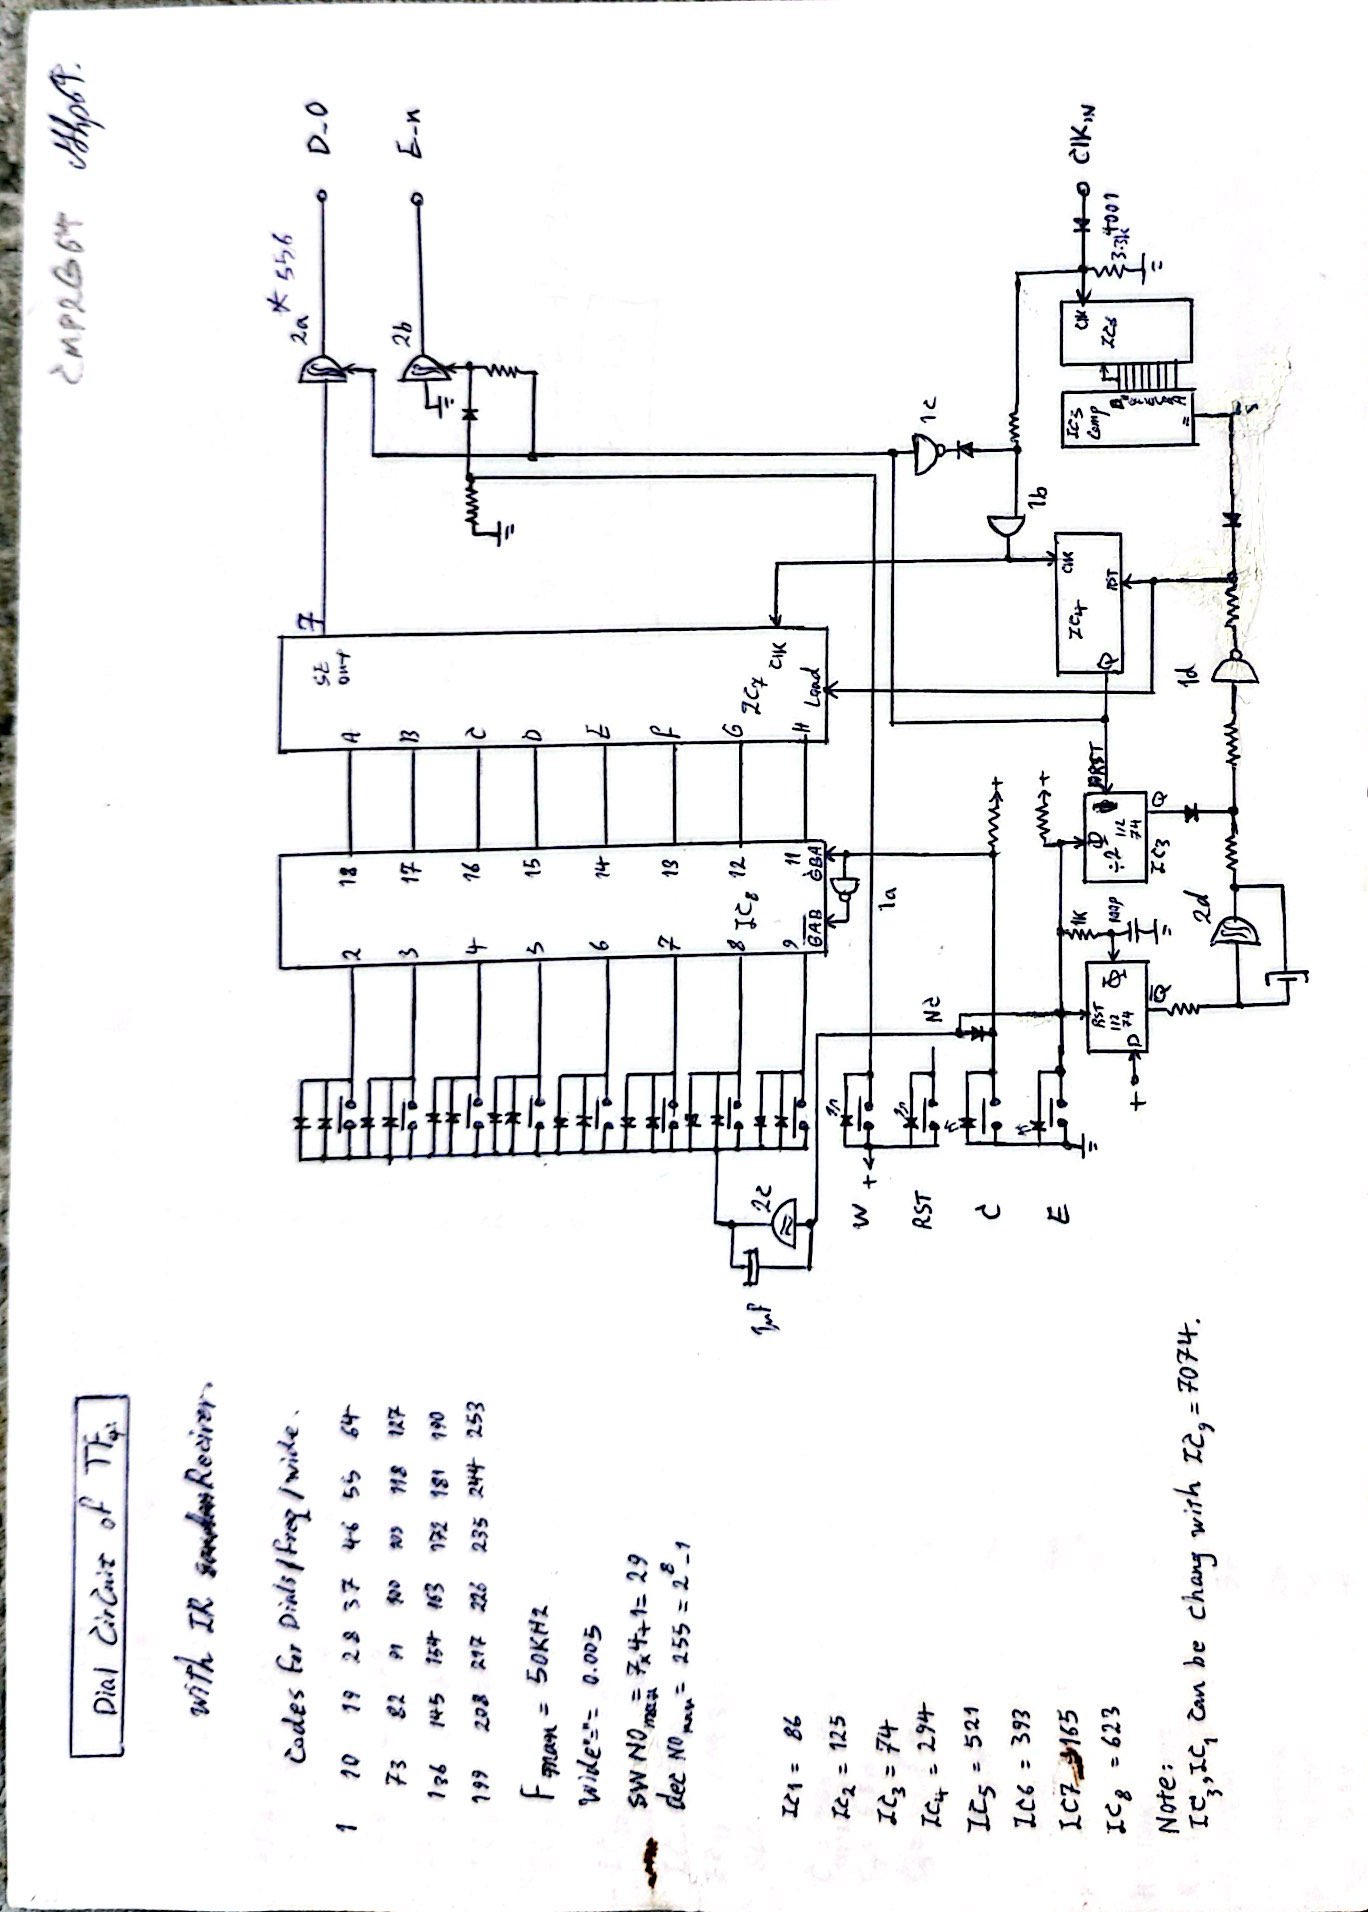 CMP2G64
Dial Circuit of TF4.
with IR Reciver.
Codes for Dials/freq/wide.
1 10 19 28 37 46 55 64
73 82 91 100 109 118 127
136 145 154 163 172 181 190
199 208 217 226 235 244 253
F max = 50KHz
Wide"="= 0.005
SW NO max = 7x4+1= 29
dec NO max = 255 = 2^8-1
IC1 = 86
IC2 = 125
IC3 = 74
IC4 = 294
IC5 = 521
IC6 = 393
IC7 165
IC8 = 623
Note:
IC3,IC1 can be chang with IC9 = 7074.
2 18 A
3 17 B
4 16 C
5 15 D
6 14 E
7 13 F
8 IC8 12 G
9 11 H
GAB GBA
SE out
7
IC7
CLK
Load
2a * 556
D_0
2b
E_n
1µf
2c
W +
1a
RST
NC
C
+
E
+
1K
100p
RST
1/2 74
Φ
+ D
Q
÷2 D
1/2 74
IC3 Q
RST
IC4 CLK
Q RST
1b
1c
1d
2d
IC5 Comp
=
A
CLK
IC6
3.3k
4001
CLK IN